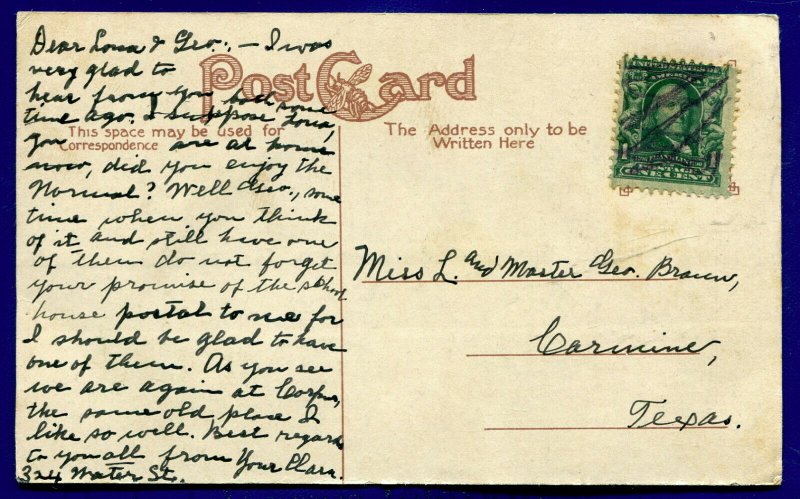 Dear Lona & Geo.:— I was
very glad to
hear from you both some
time ago. I suppose Lona,
you are at home
now, did you enjoy the
Normal? Well Geo., some
time when you think
of it and still have one
of them do not forget
your promise of the school
house postal to me for
I should be glad to have
one of them. As you see
we are again at Corpus,
the same old place I
like so well. Best regards
to you all from Your Clara.
324 Water St.
Post Card
This space may be used for
Correspondence
The Address only to be
Written Here
POSTAGE
ONE CENT
1 1
Miss L. and Master Geo. Braun,
Carmine,
Texas.